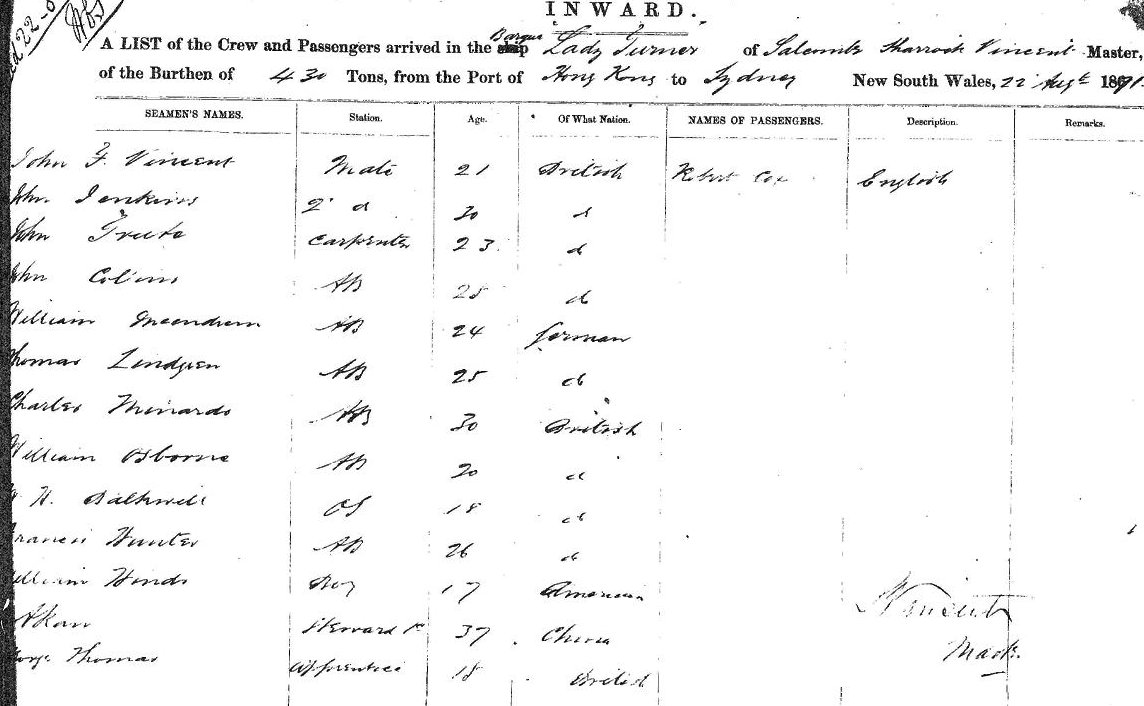 INWARD.
Barque
A LIST of the Crew and Passengers arrived in the ship Lady Turner of Salcombe Sharrock Vincent Master,
of the Burthen of 430 Tons, from the Port of Hong Kong to Sydney New South Wales, 22 Augt 1871.
SEAMEN'S NAMES. Station. Age. Of What Nation. NAMES OF PASSENGERS. Description. Remarks.
John F. Vincent Mate 21 British Robert Cox English
John Jenkins 2d 30 d
John Carpenter 23 d
John Collins AB 28 d
William AB 24 German
Thomas Lindgren AB 25 do
Charles Minards AB 30 British
William Osborne AB 20 d
H. Balkwill OS 18 do
Francis Hunter AB 26 d
William Hinds Boy 17 American
Vincent
Akow Steward 37 China
Mast.
George Thomas Apprentice 18 British